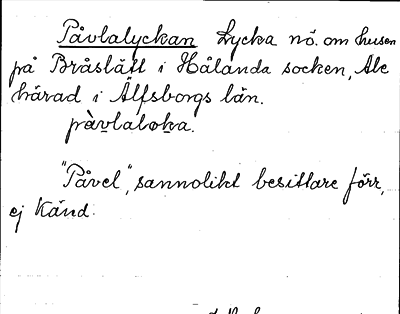 Påvlalyckan Lycka nö. om husen
på Bråslätt i Hålanda socken, Ale
härad i Älfsborgs län.
pàvlaløka.
"Påvel", sannolikt besittare förr,
ej känd.